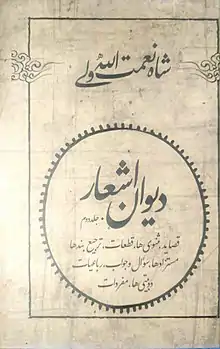 شاه نعمت الله ولی
دیوان اشعار
جلد دوم
قصاید، مثنوی ها، قطعات، ترجیع بندها
مستزادها، سؤال و جواب، رباعیات
دوبیتی ها، مفردات